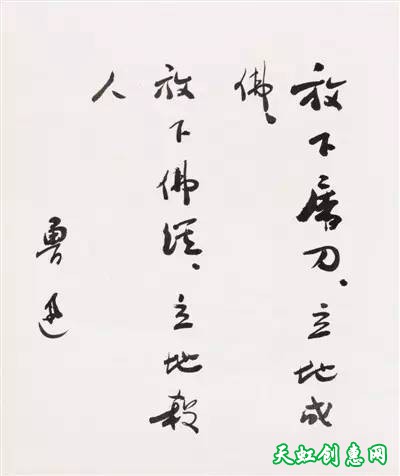 放下屠刀、立地成
佛、
放下佛經、立地殺
人
魯迅
天虹创惠网